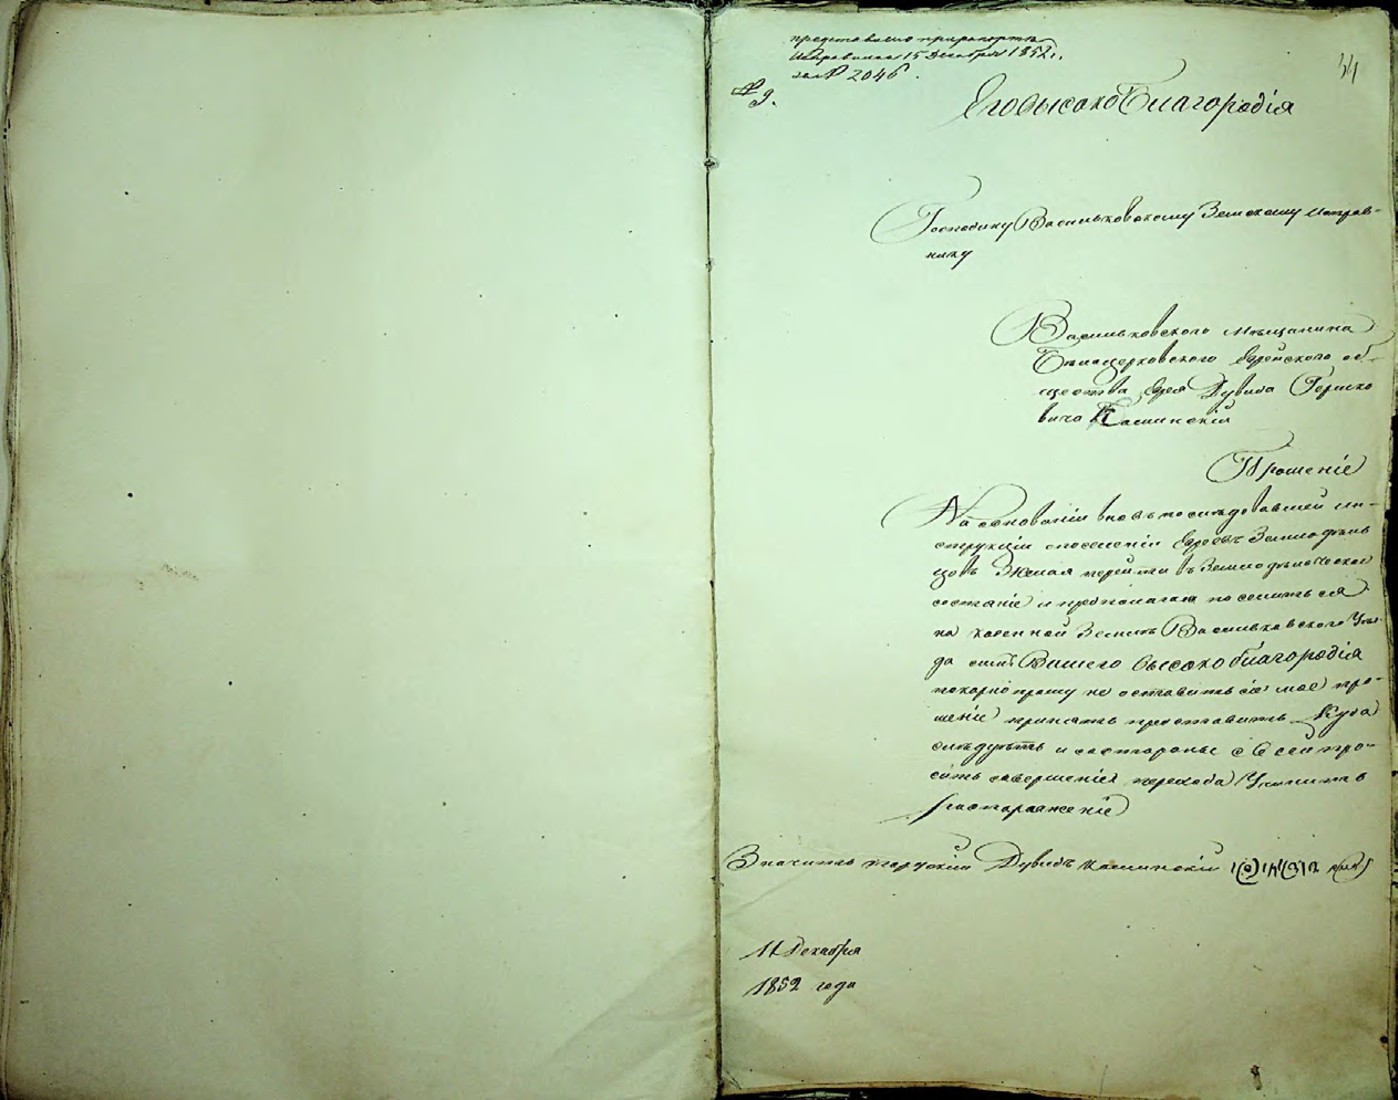 представлено при рапорте
Исправника 15 Декабря 1852 г.
за № 2046.
34
№ 9.
Его Высоко Благородія
Господину Васильковскому Земскому Исправ-
нику
Васильковского мещанина
Белоцерковского Еврейского об-
щества Еврея Дувида Гершко
вича Каминскій
Прошеніе
На основаніи вновь последовавшей ин-
струкціи о поселеніи Евреевъ Земледель
цовъ Желая перейти въ Земледельческое
состояніе и предполагая поселиться
на казенной Земле Васильковского Уез-
да Вашего высоко благородія
покорно прошу не оставить сіе мое про-
шеніе принять представить Куда
следуеть и состороны
совершенія перехода Учинить
распоряженіе
Значить порускіи Дувидъ Каминскіи
11 Декабря
1852 года